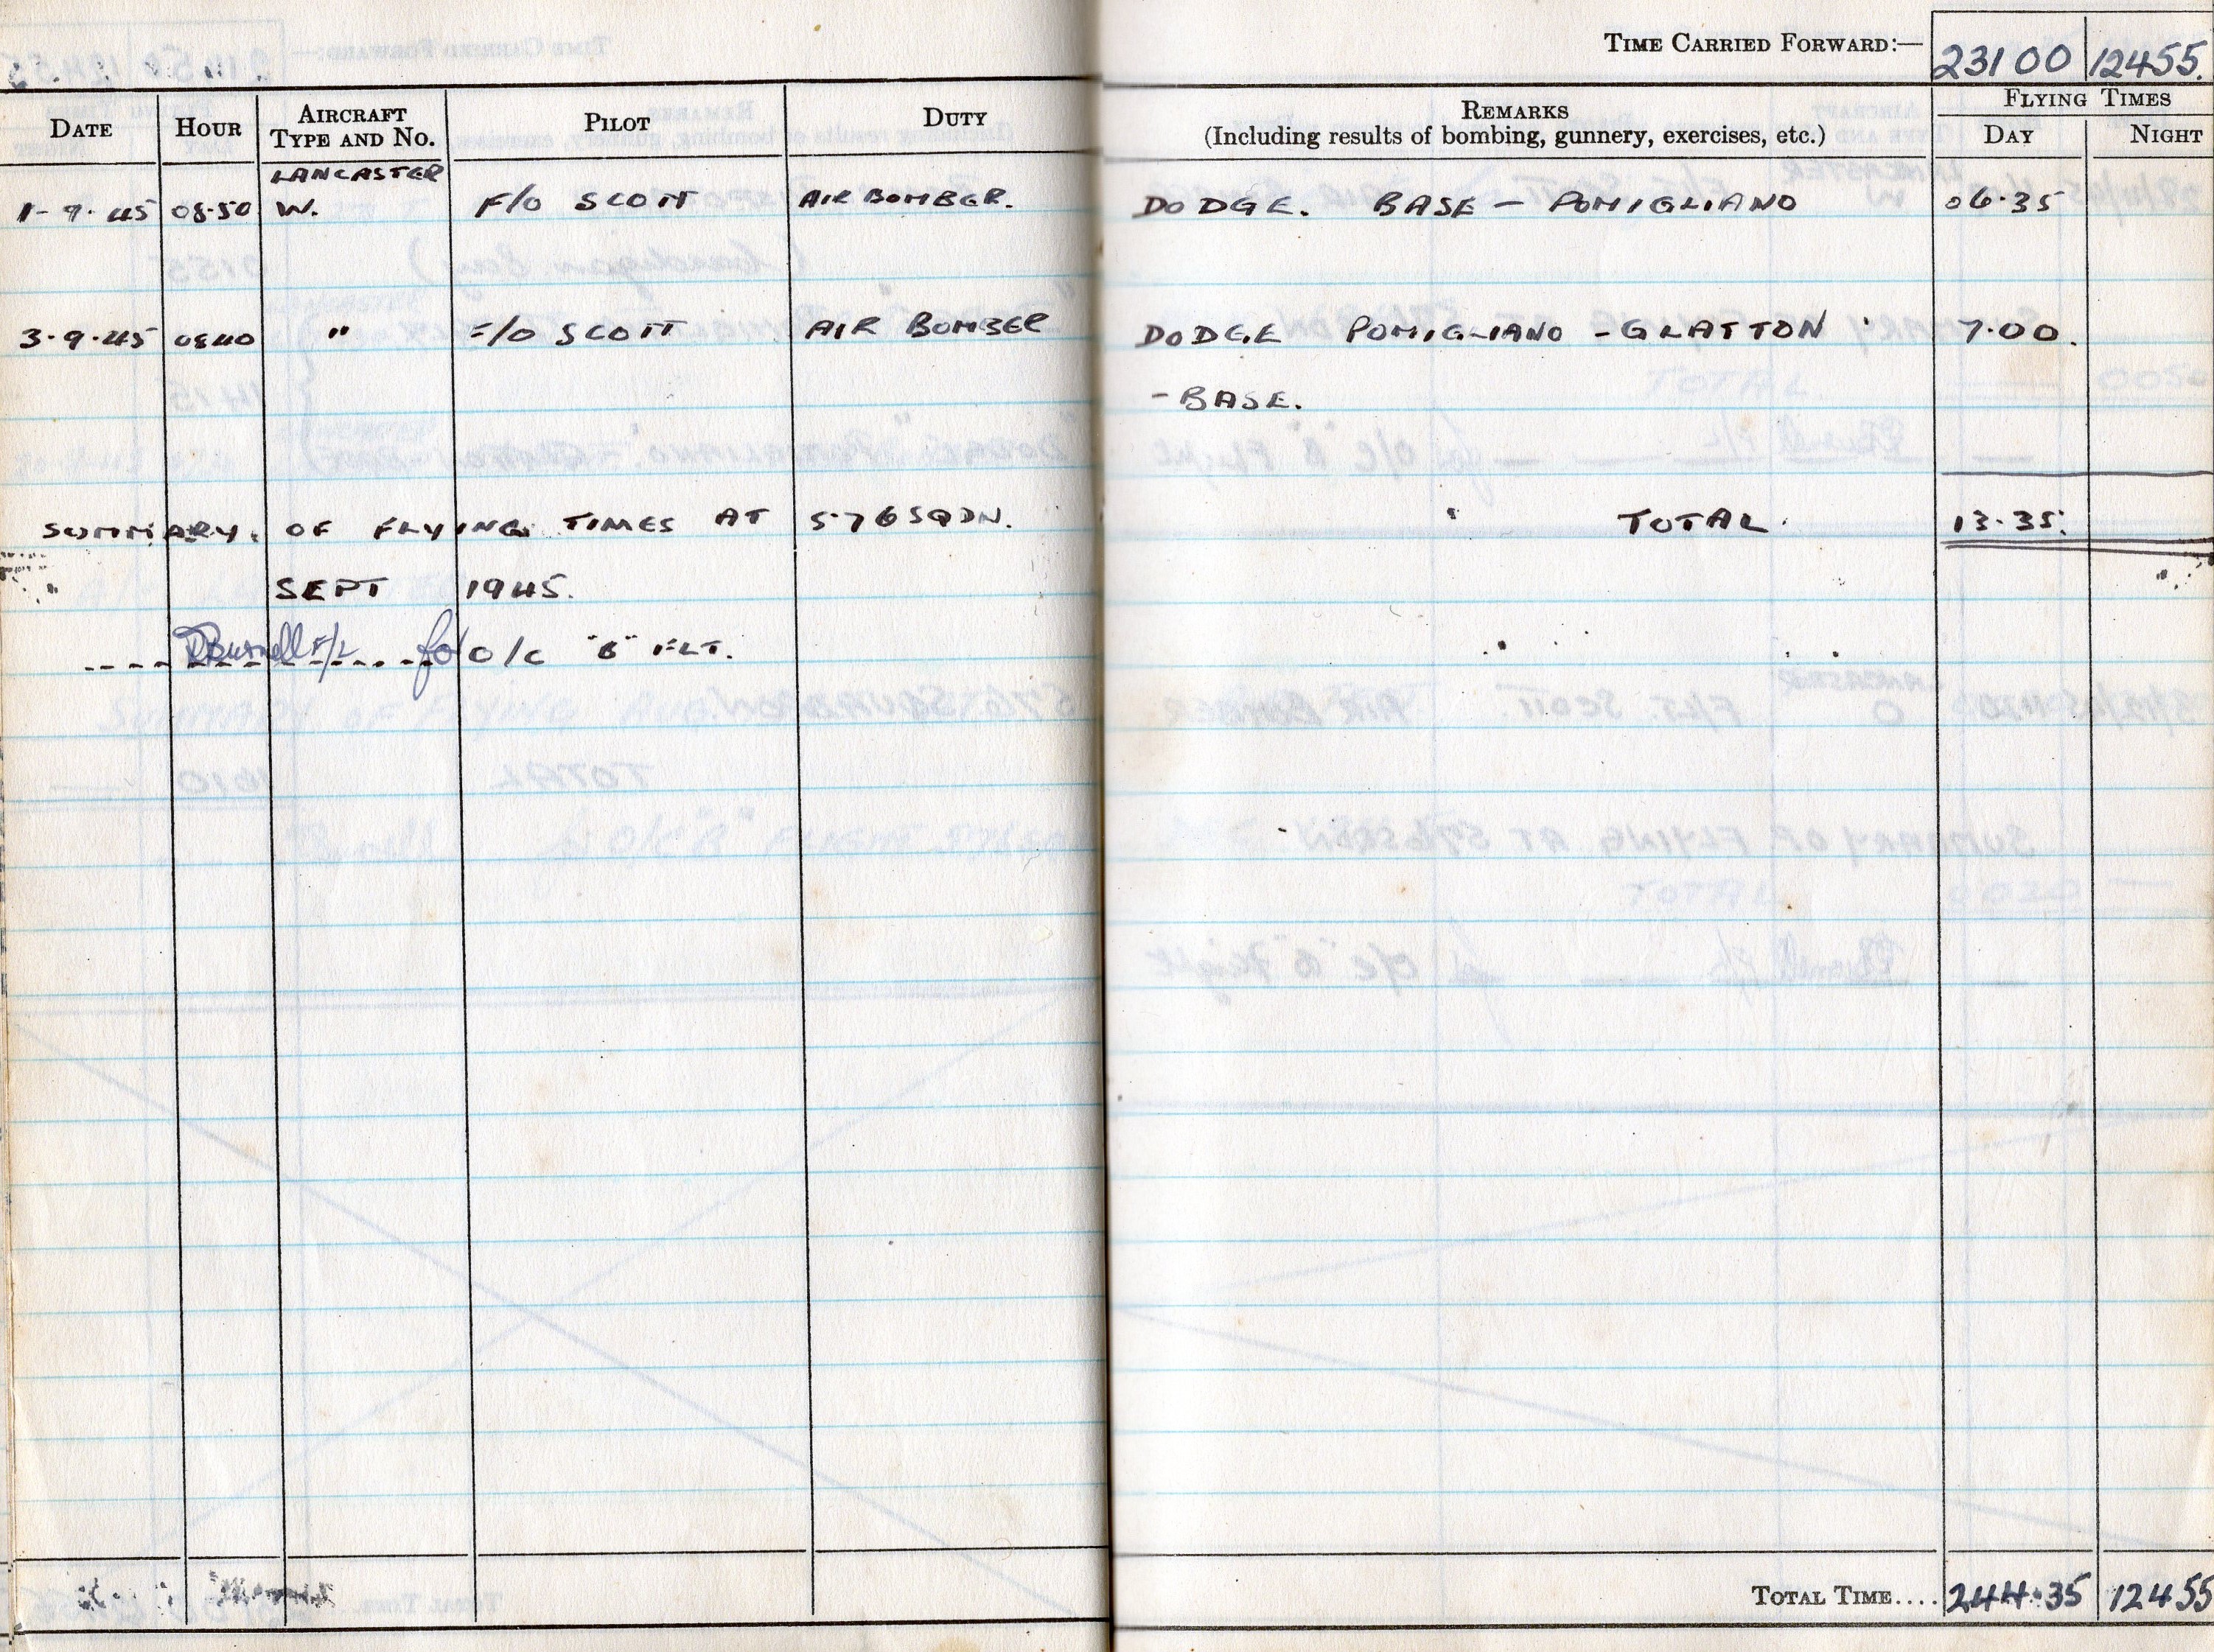 TIME CARRIED FORWARD:— 231 00 124 55.
DATE HOUR AIRCRAFT TYPE AND NO. PILOT DUTY REMARKS (Including results of bombing, gunnery, exercises, etc.) FLYING TIMES DAY NIGHT
LANCASTER
1-9-45 08.50 W. F/O SCOTT AIR BOMBER. DODGE. BASE — POMIGLIANO 06.35
3.9.45 0840 " F/O SCOTT AIR BOMBER DODGE POMIGLIANO - GLATTON 7.00.
- BASE.
SUMMARY. OF FLYING TIMES AT 576 SQDN. TOTAL. 13.35.
SEPT 1945.
F/L for O/C "B" FLT.
TOTAL TIME.... 244.35 124 55